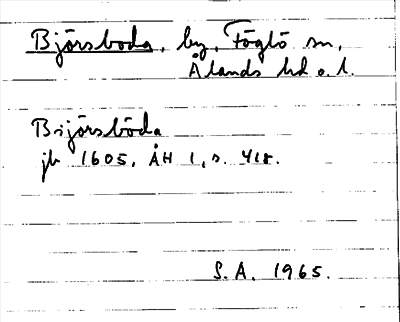 Björsboda, by, Föglö sn,
Ålands hd o. l.
Bijörsböda
jb 1605, ÅH 1, s. 418.
S.A. 1965.